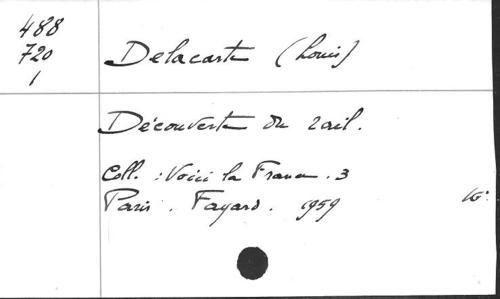 488
720
1
Delacarte (Louis)
Découverte du rail.
Coll. : Voici la France. 3
Paris. Fayard. 1959
16°